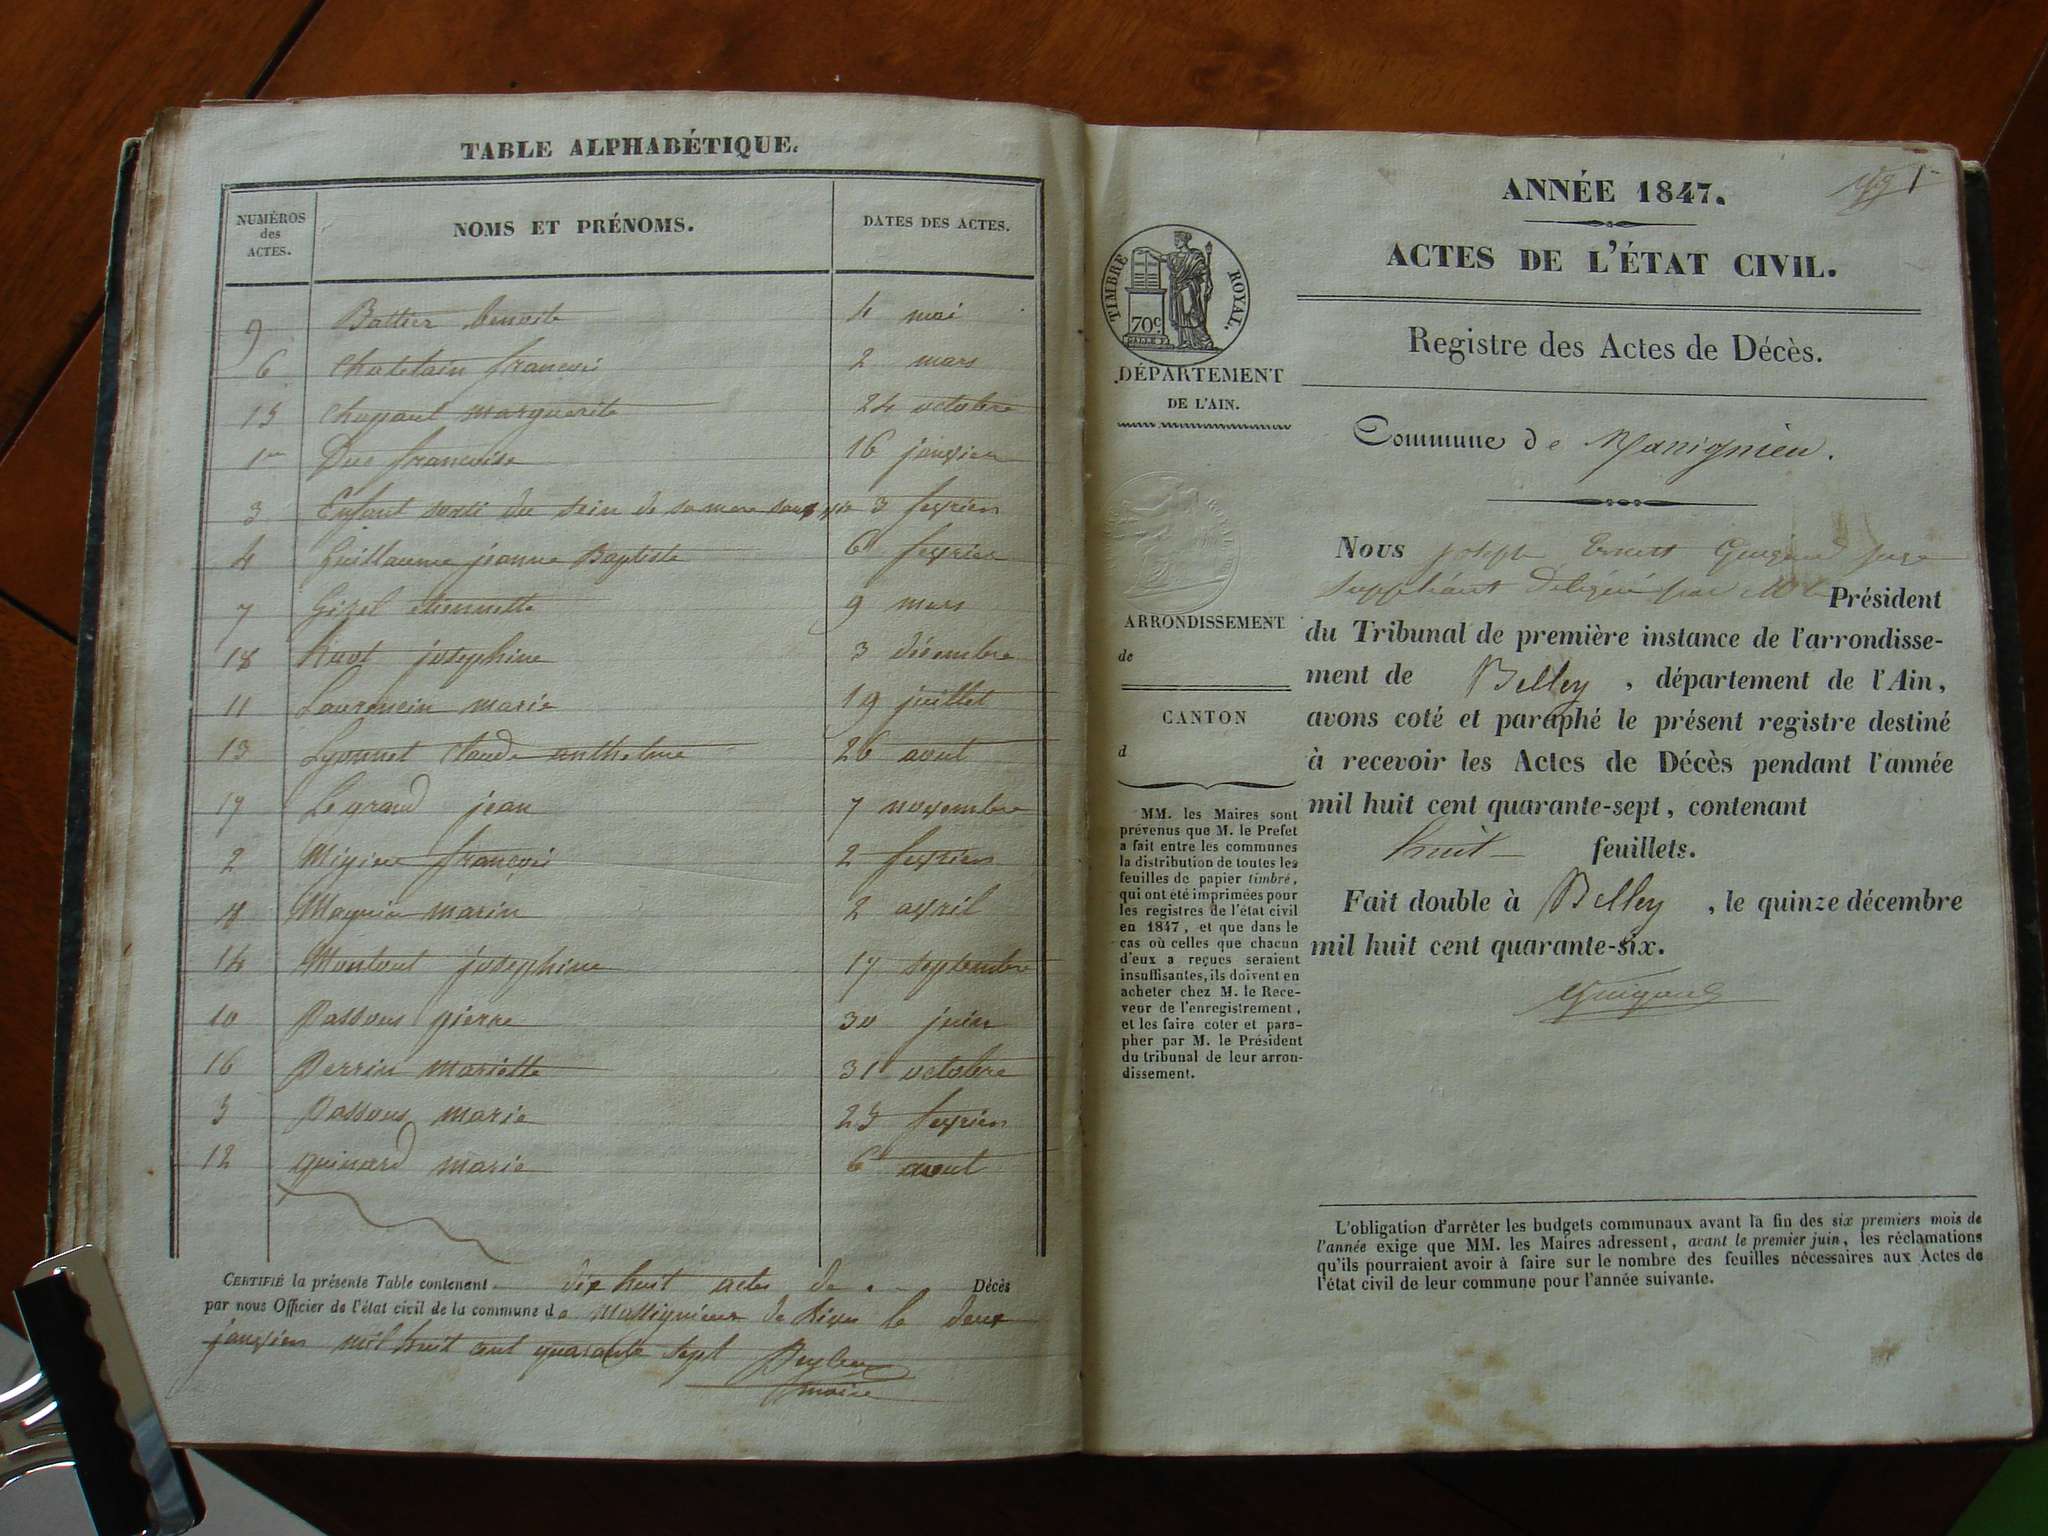 TABLE ALPHABÉTIQUE.
NUMÉROS des ACTES.
NOMS ET PRÉNOMS.
DATES DES ACTES.
9 Battier benoite 4 mai
6 Chatelain francois 2 mars
15 Chapant marguerite 24 octobre
1er Duc francoise 16 janvier
3 Enfant sorti du sein de sa mere sans vie 3 fevrier
4 Guillaume jeanne Baptiste 6 fevrier
7 etiennette 9 mars
18 josephine 3 décembre
11 Laurencin marie 19 juillet
13 Lyonnet Claude anthelme 26 aout
17 Legrand jean 7 novembre
2 francois 2 fevrier
8 2 avril
14 Montout josephine 17 septembre
10 Passous pierre 30 juin
16 Perrin mariette 31 octobre
5 Passous marie 23 fevrier
12 quinard marie 6 aout
CERTIFIÉ la présente Table contenant dix huit actes de Décès
par nous Officier de l'état civil de la commune de Massignieux de Rives le deux
janvier mil huit cent quarante sept
maire
ANNÉE 1847.
ACTES DE L'ÉTAT CIVIL.
Registre des Actes de Décès.
Commune de
TIMBRE ROYAL.
70c
DÉPARTEMENT
DE L'AIN.
ARRONDISSEMENT
de
CANTON
d
MM. les Maires sont
prévenus que M. le Prefet
a fait entre les communes
la distribution de toutes les
feuilles de papier timbré,
qui ont été imprimées pour
les registres de l'état civil
en 1847, et que dans le
cas où celles que chacun
d'eux a reçues seraient
insuffisantes, ils doivent en
acheter chez M. le Rece-
veur de l'enregistrement,
et les faire coter et para-
pher par M. le Président
du tribunal de leur arron-
dissement.
Nous joseph Ernest Guigard juge
Suppléant Délégué par M. le Président
du Tribunal de première instance de l'arrondisse-
ment de Belley, département de l'Ain,
avons coté et paraphé le présent registre destiné
à recevoir les Actes de Décès pendant l'année
mil huit cent quarante-sept, contenant
huit feuillets.
Fait double à Belley, le quinze décembre
mil huit cent quarante-six.
L'obligation d'arrêter les budgets communaux avant la fin des six premiers mois de
l'année exige que MM. les Maires adressent, avant le premier juin, les réclamations
qu'ils pourraient avoir à faire sur le nombre des feuilles nécessaires aux Actes de
l'état civil de leur commune pour l'année suivante.